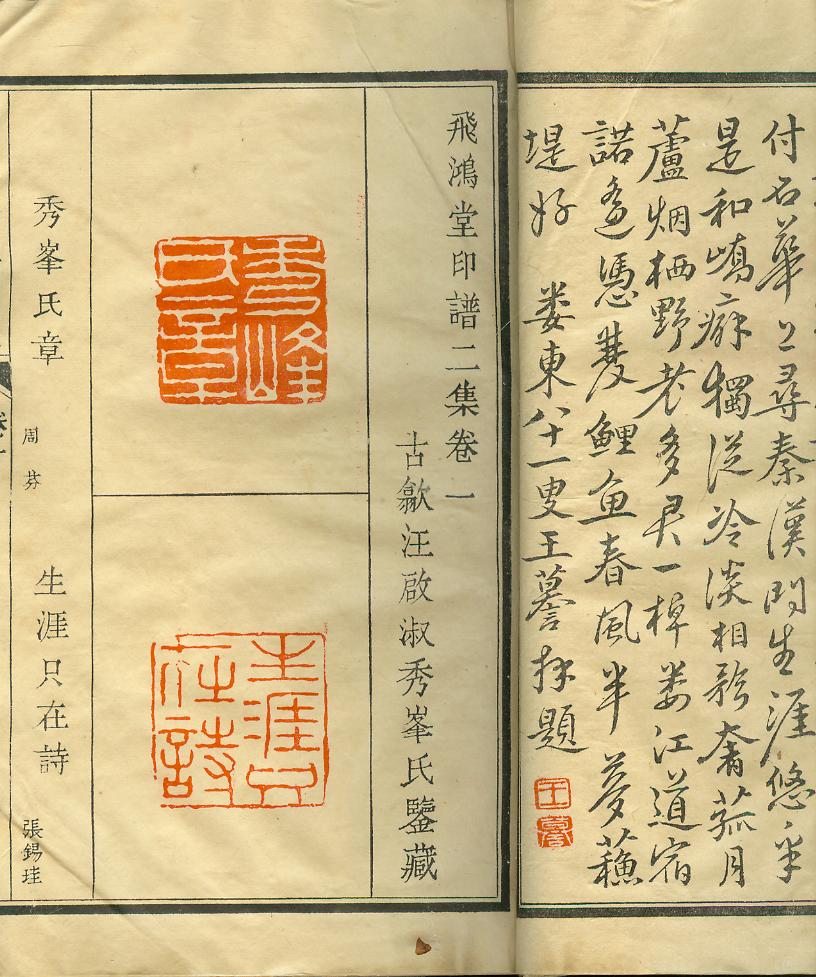 付石華上尋秦漢間生涯悠乎
是和嶠癖獨從冷淡相矜奢菰月
蘆烟栖野老多君一棹婁江道宿
諾遙憑雙鯉魚春風半夢蘓
堤好 婁東八十一叟王謩拜題
王謩
飛鴻堂印譜二集卷一
古歙汪啟淑秀峯氏鑒藏
秀峰
氏章
生涯只
在詩
秀峯氏章 周芬
生涯只在詩 張錫珪